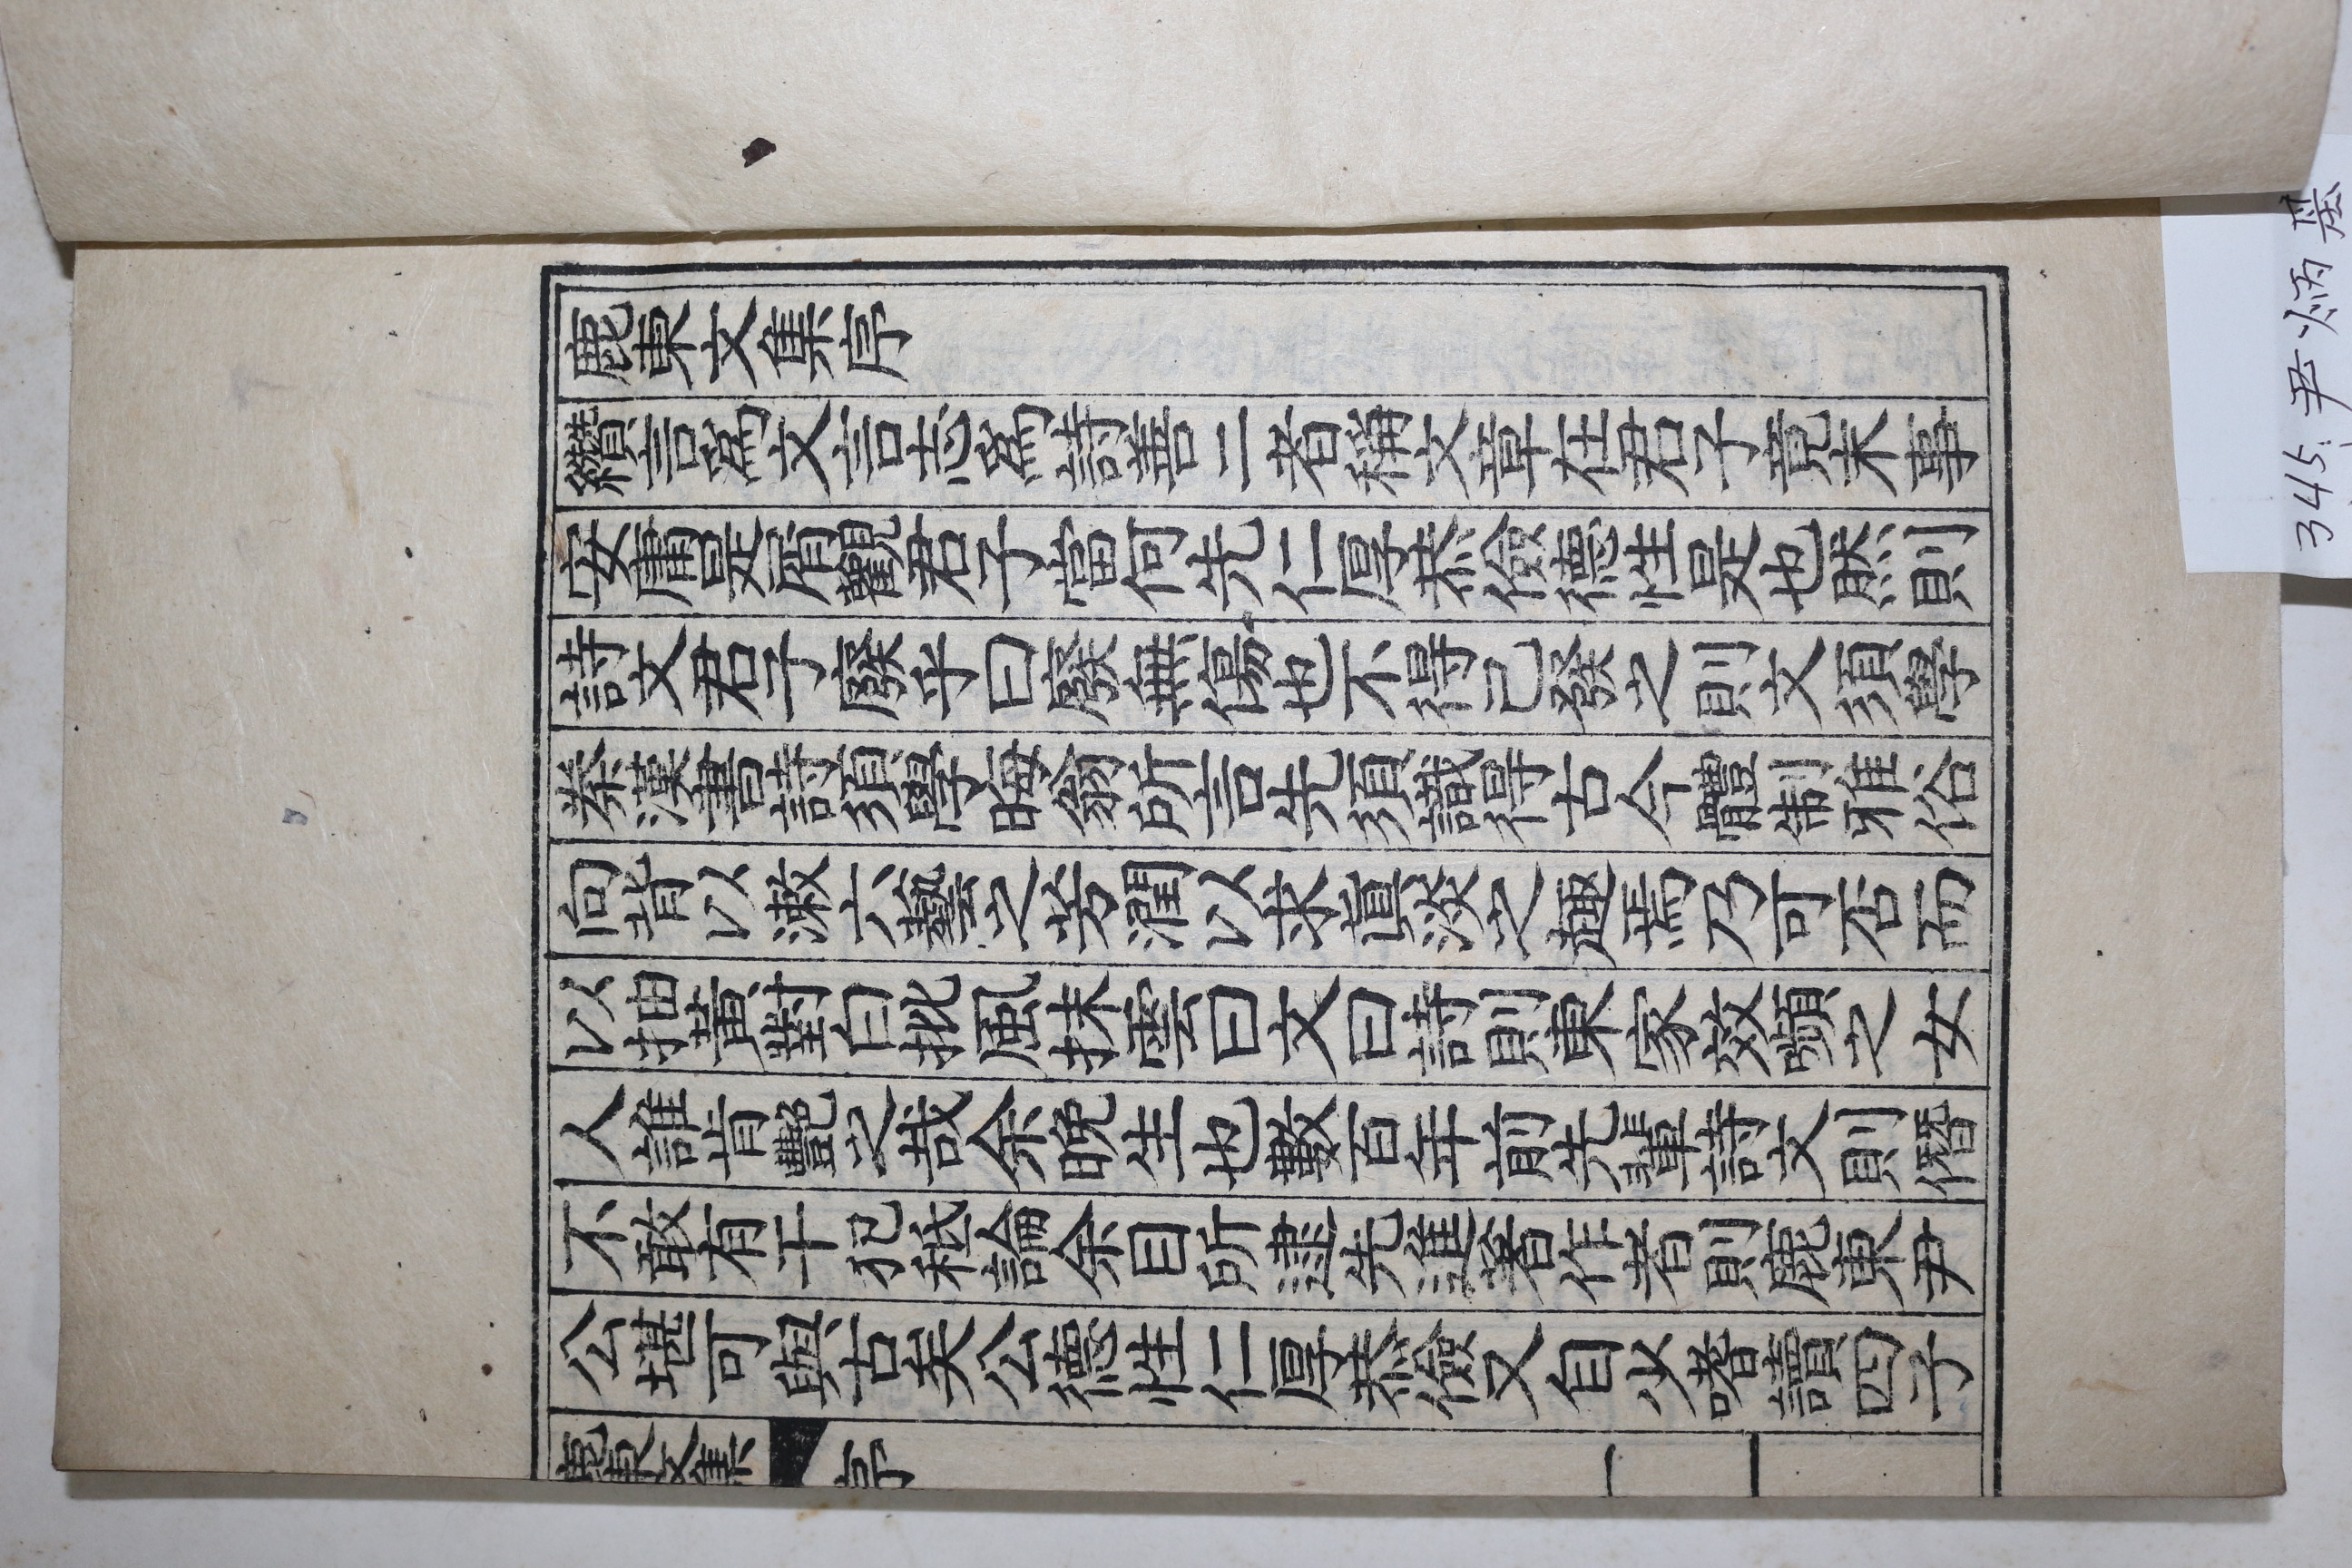 鹿東文集序
纘言爲文言志爲詩善二者稱文章在君子竟末事
安庸是屑觀君子當何先仁厚恭儉德性是也然則
詩文君子廢乎曰廢無傷也不得已發之則文須學
秦漢書詩須學晦翁所言先須識得古今體制雅俗
向背以漱六藝之芳潤以求眞淡之趣焉乃可否而
以抽黃對白批風抹雲曰文曰詩則東家效嚬之女
人誰肯艷之哉余晩生也數百年前先輩詩文則僭
不敢有干犯秪論余目所逮先進著作者則鹿東尹
公堪可與古矣公德性仁厚恭儉又自少嗜讀四子
鹿東文集 序 一
345. 尹炳